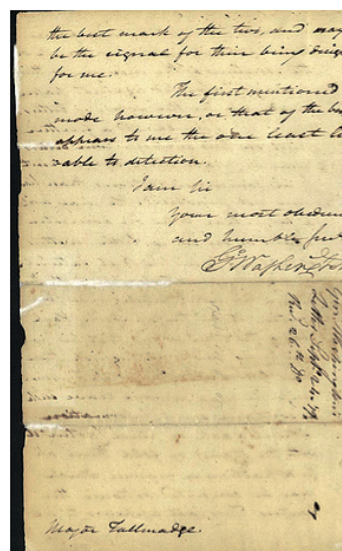 the best mark of the two, and may
be the signal for their being
for me.
The first mentioned
mode however, or that of the
appears to me the one least
able to detection.
I am Sir
Your most obed
and humble
G. Washington
Letter Sept 24
26th
Major Tallmadge